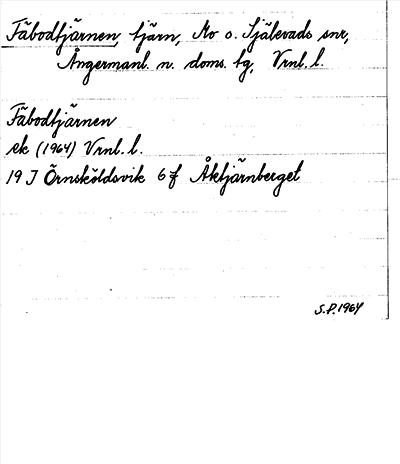 Fäbodtjärnen, tjärn, Mo o. Själevads snr,
Ångermanl. n. doms. tg, Vrnl. l.
Fäbodtjärnen
ek (1964) Vrnl. l.
19 J Örnsköldsvik 6 f Åktjärnberget
S.P. 1964